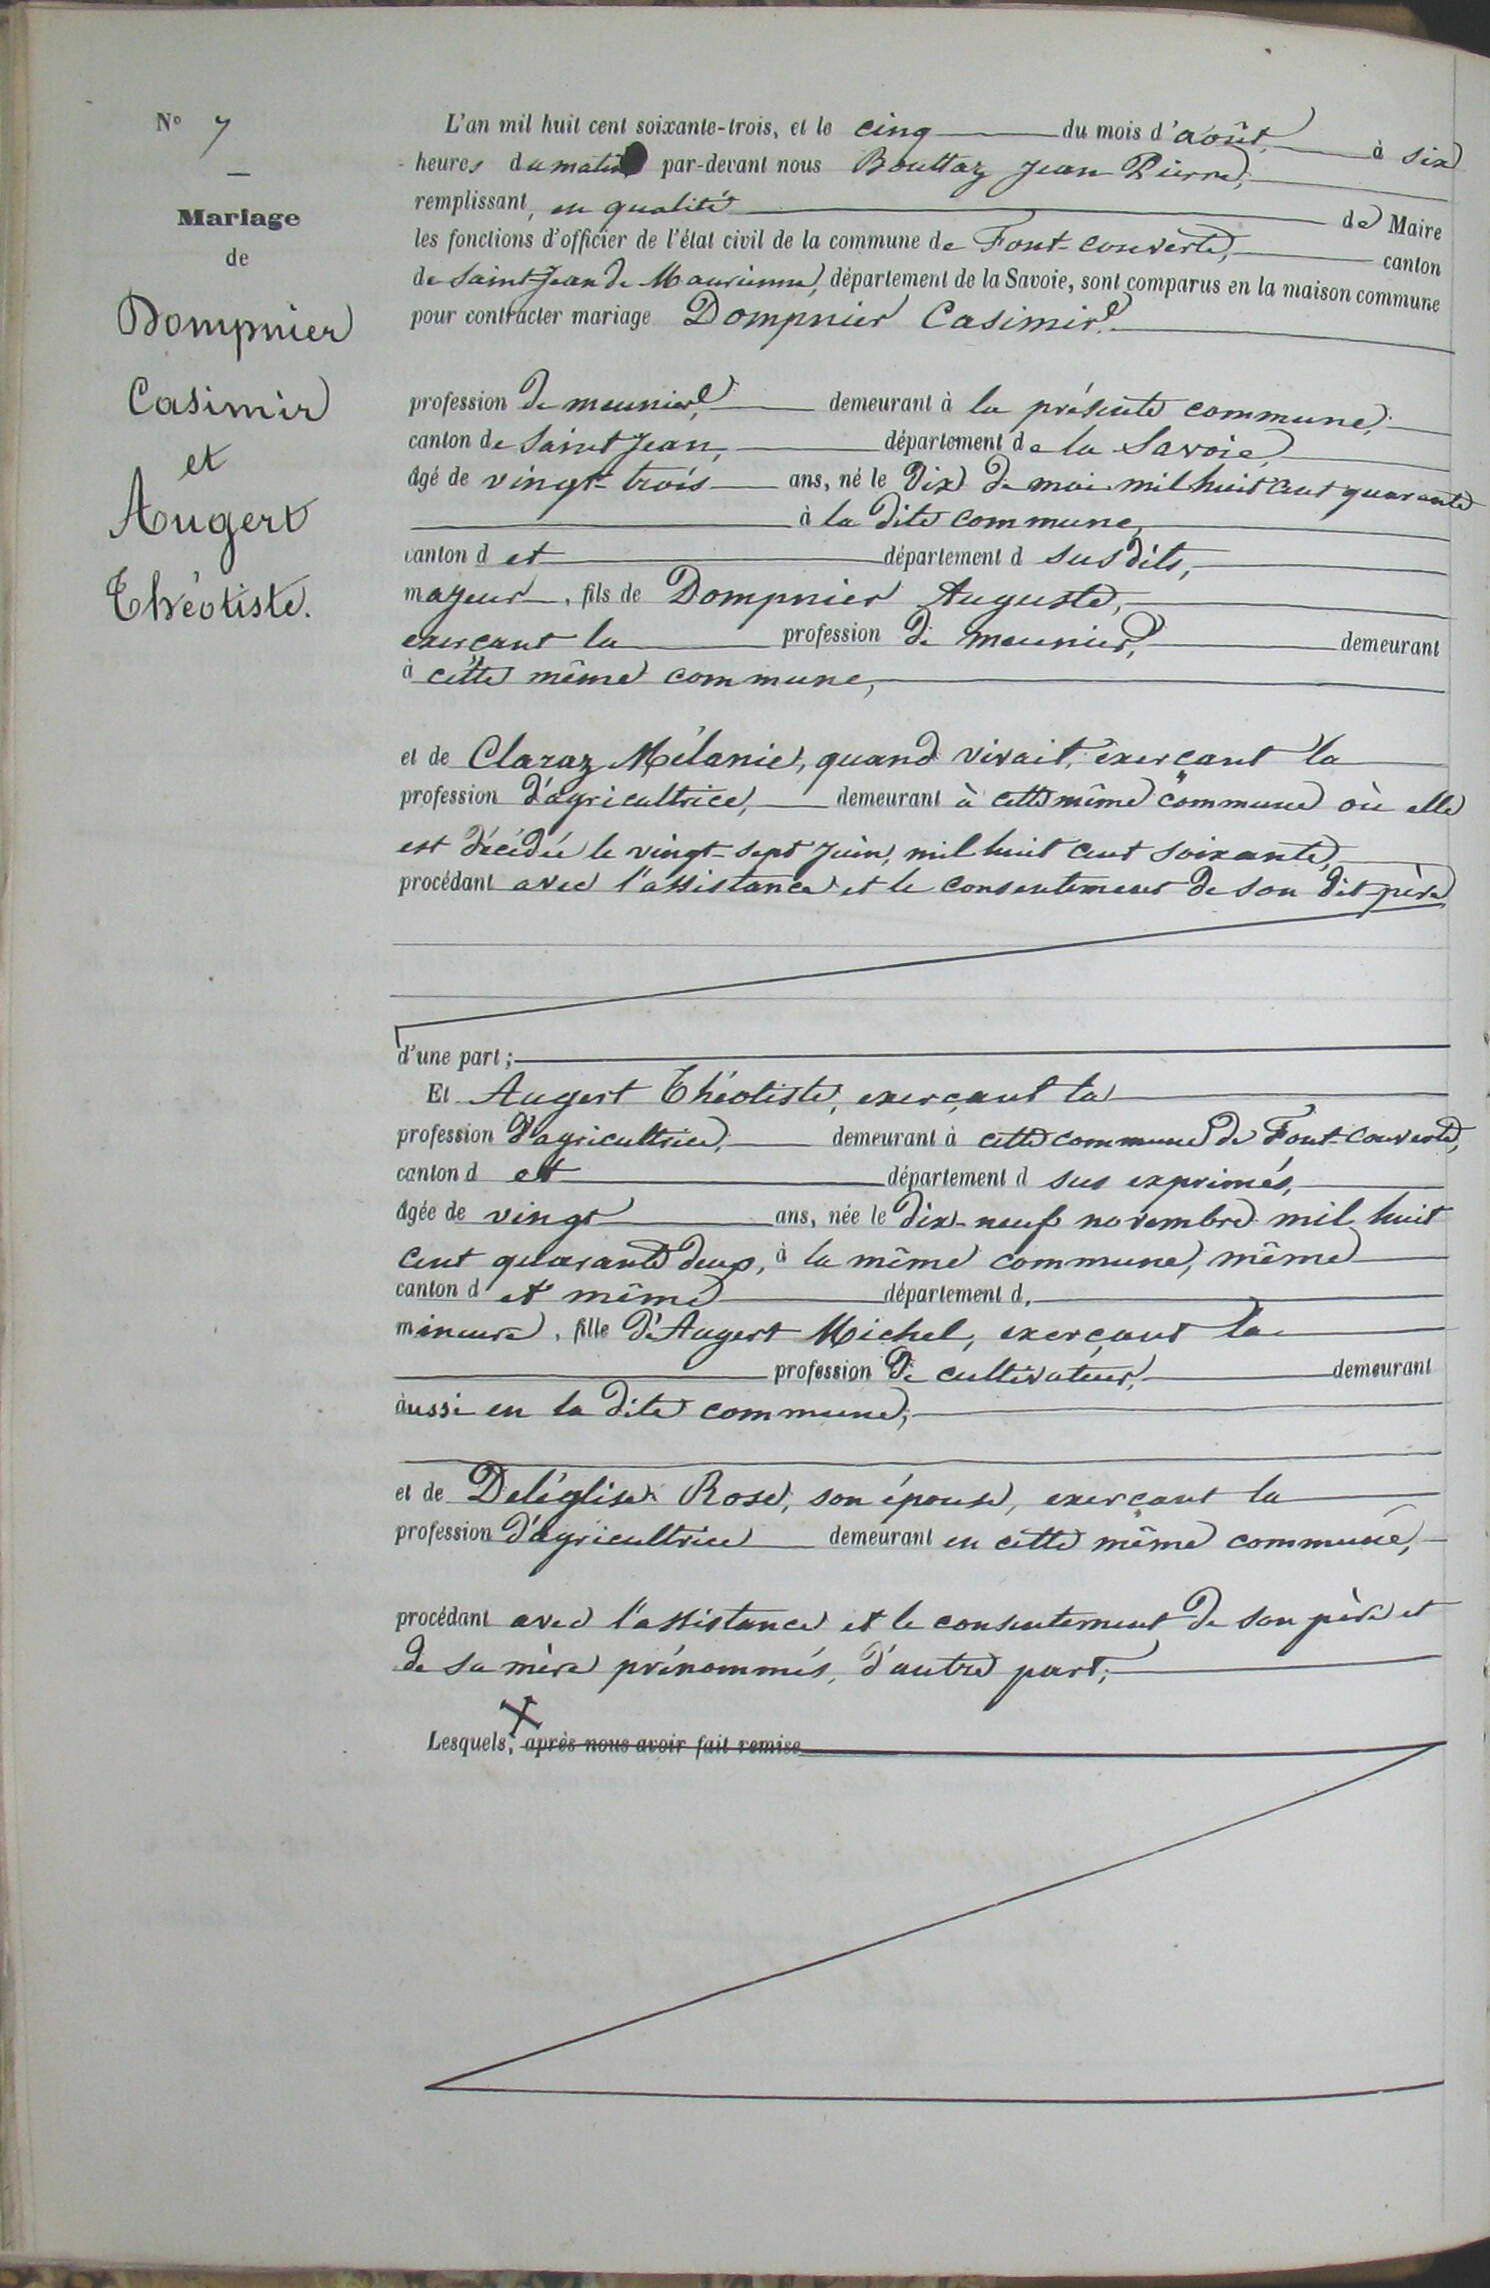 N° 7
Mariage
de
Dompnier
Casimir
et
Augert
Théotiste.
L'an mil huit cent soixante-trois, et le cinq du mois d'août, à six
heures du matin par-devant nous Bouttaz Jean Pierre,
remplissant, en qualité de Maire
les fonctions d'officier de l'état civil de la commune de Font-couverte, canton
de Saint-Jean de Maurienne, département de la Savoie, sont comparus en la maison commune
pour contracter mariage Dompnier Casimir,
profession de meunier, demeurant à la présente commune,
canton de Saint Jean, département de la Savoie,
âgé de vingt-trois ans, né le dix de mai mil huit cent quarante
à la dite commune,
canton d et département d sus dits,
majeur, fils de Dompnier Auguste,
exerçant la profession de meunier, demeurant
à cette même commune,
et de Claraz Mélanie, quand vivait, exerçant la
profession d'agricultrice, demeurant à cette même commune où elle
est décédée le vingt-sept Juin, mil huit cent soixante,
procédant avec l'assistance et le consentement de son dit père
d'une part;
Et Augert Théotiste, exerçant la
profession d'agricultrice, demeurant à cette commune de Font-couverte,
canton d et département d sus exprimés,
âgée de vingt ans, née le dix-neuf novembre mil huit
cent quarante deux, à la même commune, même
canton d et même département d,
mineure, fille d'Augert Michel, exerçant la
profession de cultivateur, demeurant
àussi en la dite commune,
et de Deléglise Rose, son épouse, exerçant la
profession d'agricultrice demeurant en cette même commune,
procédant avec l'assistance et le consentement de son père et
de sa mère prénommés, d'autre part;
Lesquels, après nous avoir fait remise